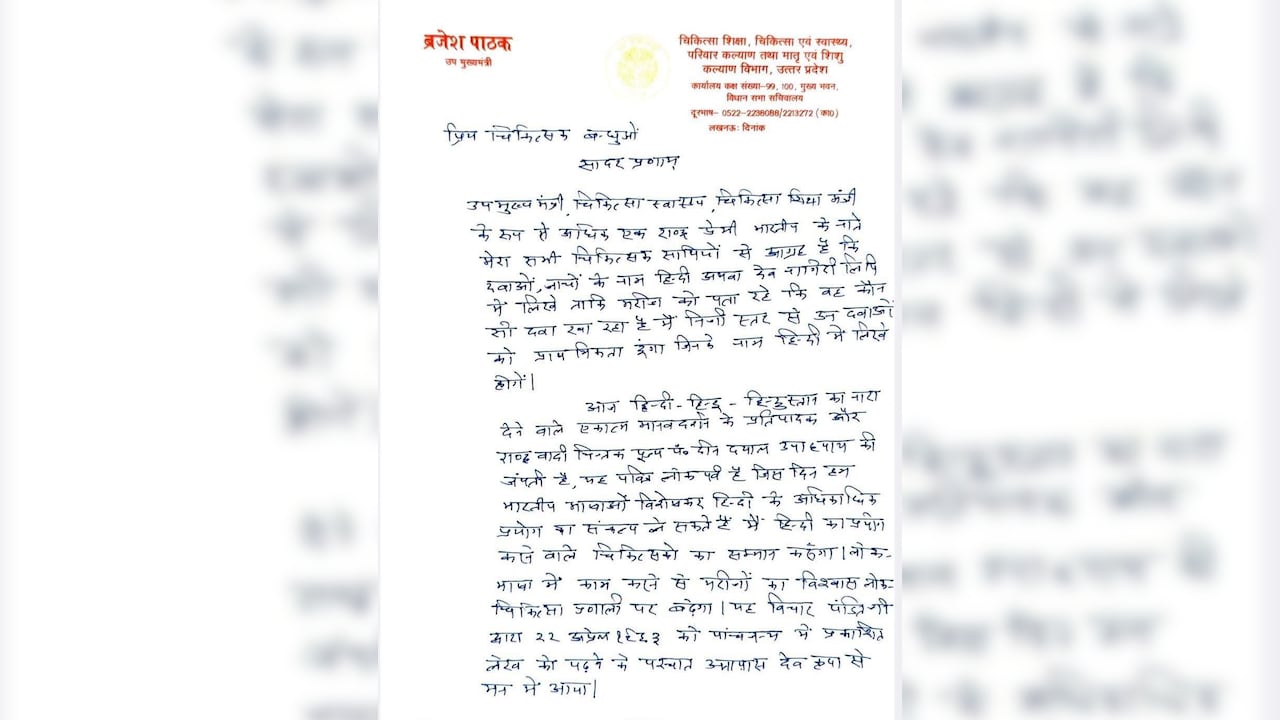 ब्रजेश पाठक
उप मुख्यमंत्री
चिकित्सा शिक्षा, चिकित्सा एवं स्वास्थ्य,
परिवार कल्याण तथा मातृ एवं शिशु
कल्याण विभाग, उत्तर प्रदेश
कार्यालय कक्ष संख्या-99, 100, मुख्य भवन,
विधान सभा सचिवालय
दूरभाष- 0522-2238088/2213272 (का0)
लखनऊ: दिनांक
प्रिय चिकित्सक बन्धुओं
सादर प्रणाम्
उप मुख्य मंत्री, चिकित्सा स्वास्थ्य, चिकित्सा शिक्षा मंत्री
के रूप से अधिक एक राष्ट्र प्रेमी भारतीय के नाते
मेरा सभी चिकित्सक साथियों से आग्रह है कि
दवाओं, जाचों के नाम हिंदी अथवा देव नागिरी लिपि
में लिखे ताकि मरीज को पता रहे कि वह कौन
सी दवा खा रहा है मैं निजी स्तर से उन दवाओं
को प्राथमिकता दूंगा जिनके नाम हिन्दी में लिखे
होगें।
आज हिन्दी-हिन्दू-हिन्दुस्तान का नारा
देने वाले एकात्म मानवदर्शन के प्रतिपादक और
राष्ट्रवादी चिन्तक पूज्य पं० दीन दयाल उपाध्याय की
जंयती है, यह पवित्र लोकपर्व है जिस दिन हम
भारतीय भाषाओं विशेषकर हिन्दी के अधिकाधिक
प्रयोग का संकल्प ले सकते हैं मैं हिन्दी का प्रयोग
करने वाले चिकित्सको का सम्मान करुँगा। लोक-
भाषा में काम करने से मरीजों का विश्वास लोक-
चिकित्सा प्रणाली पर बढ़ेगा। यह विचार पंडित जी
द्वारा २२ अप्रैल को पांचजन्य में प्रकाशित
लेख को पढ़ने के पश्चात अनायास देव कृपा से
मन में आया।